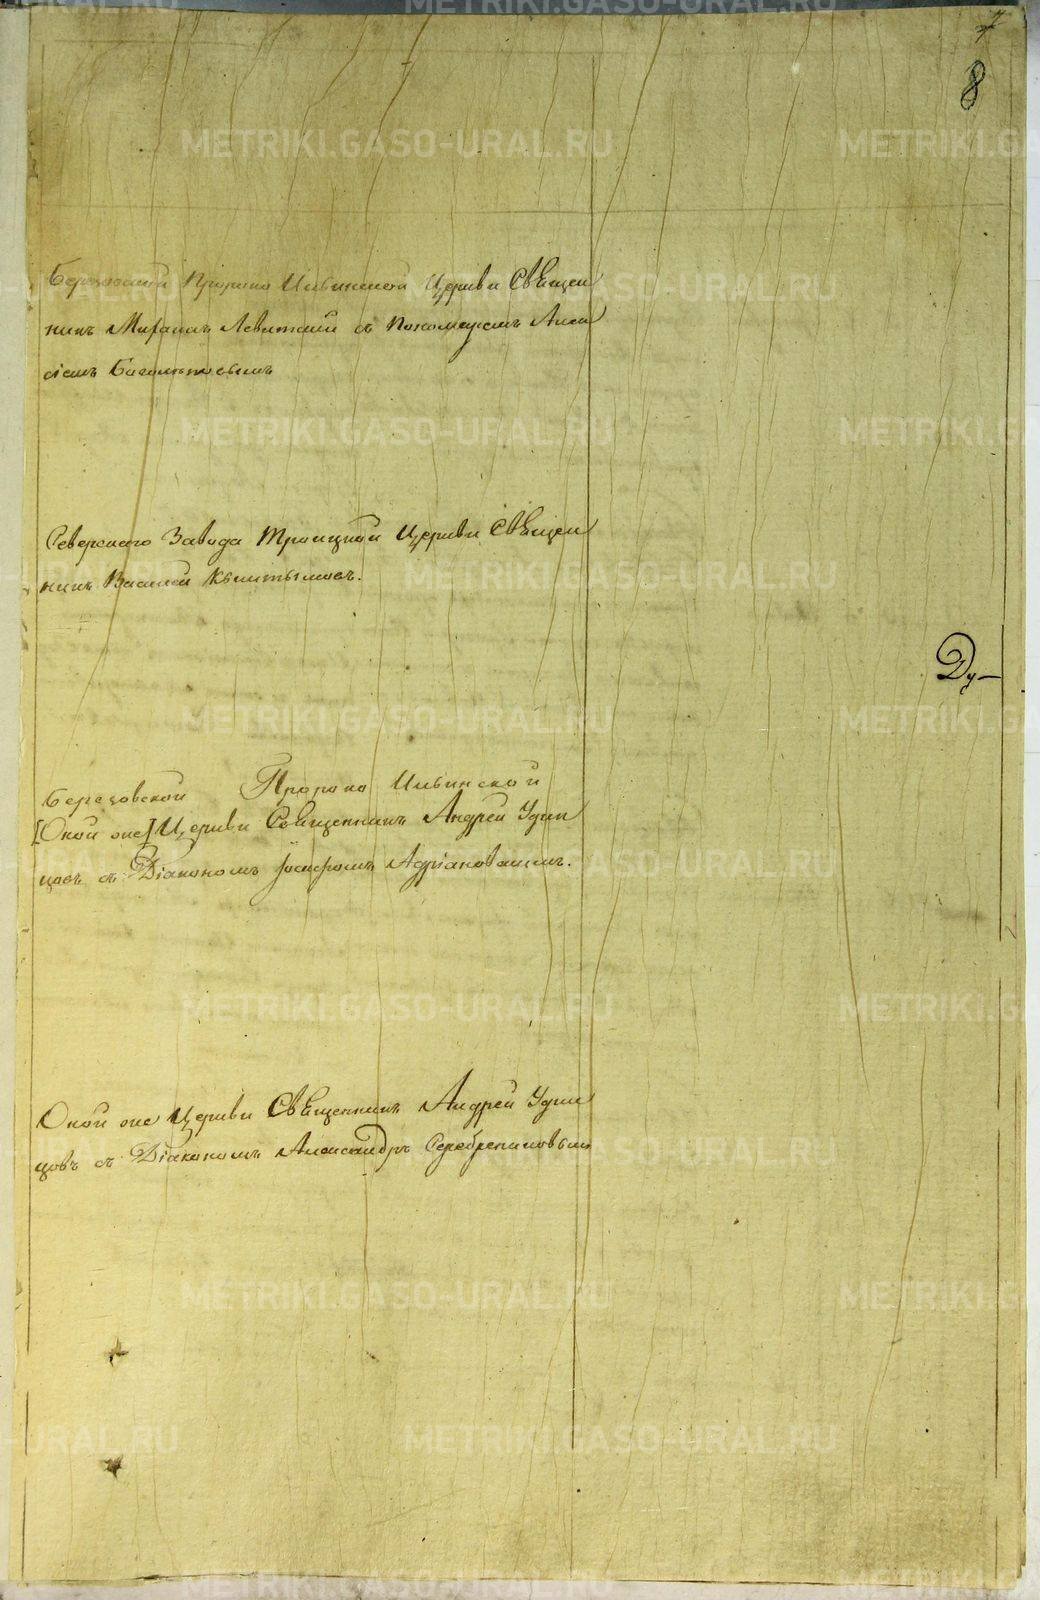 7
8
Березовской Пророко Ильинской Церкви Священ
никъ Михаилъ Левитскій съ Пономаремъ Алек
сіемъ
Северскаго Завода Троицкой Церкви Священ
никъ Василей
Ду-
Березовской Пророко Ильинской
[Оной же] Церкви Священникъ Андрей Удин
цовъ съ Діакономъ Іосифомъ Адріановскимъ.
Оной же Церкви Священникъ Андрей Удин
цовъ съ Діакономъ Александръ Серебрениковымъ